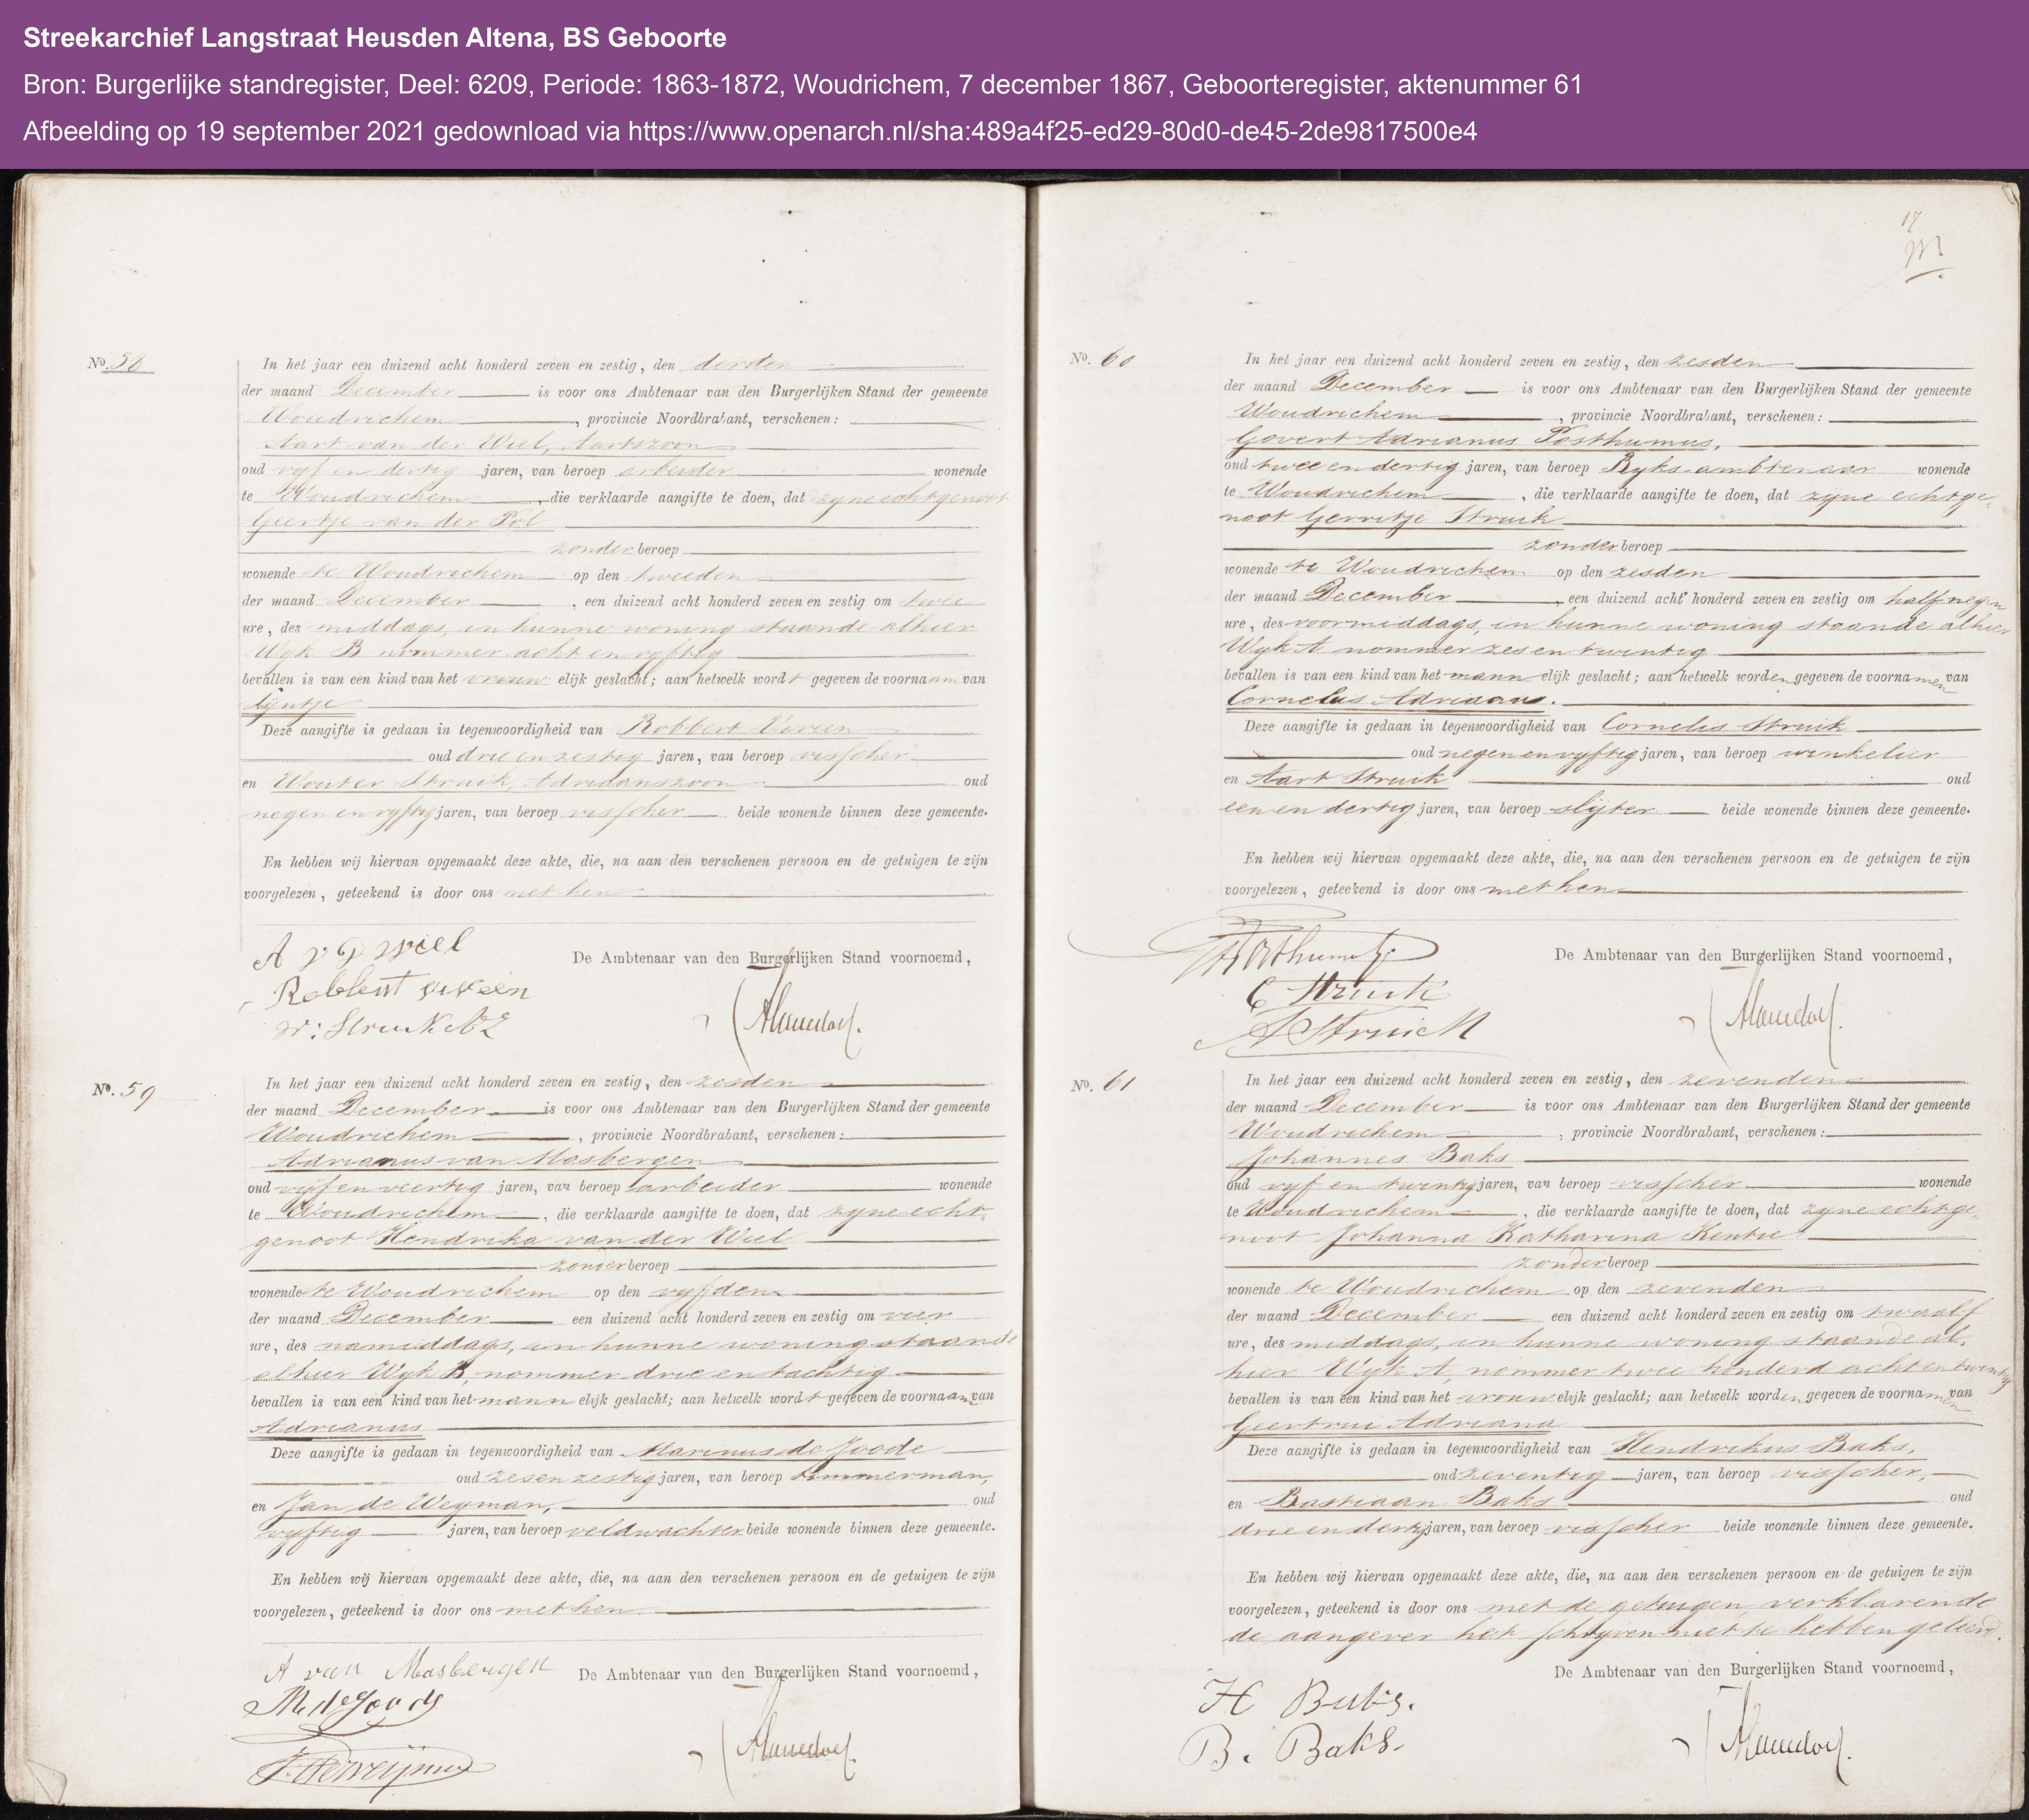 Streekarchief Langstraat Heusden Altena, BS Geboorte
Bron: Burgerlijke standregister, Deel: 6209, Periode: 1863-1872, Woudrichem, 7 december 1867, Geboorteregister, aktenummer 61
Afbeelding op 19 september 2021 gedownload via https://www.openarch.nl/sha:489a4f25-ed29-80d0-de45-2de9817500e4
No. 58
In het jaar een duizend acht honderd zeven en zestig, den derden
der maand December is voor ons Ambtenaar van den Burgerlijken Stand der gemeente
Woudrichem, provincie Noordbrabant, verschenen:
Aart van der Wiel, Aartszoon
oud vyf en dertig jaren, van beroep arbeider wonende
te Woudrichem, die verklaarde aangifte te doen, dat zyne echtgenoot
Geertje van der Pol
zonder beroep
wonende te Woudrichem op den tweeden
der maand December, een duizend acht honderd zeven en zestig om twee
ure, des middags, in hunne woning staande alhier
Wyk B nommer acht en vyftig
bevallen is van een kind van het vrouwelijk geslacht; aan hetwelk wordt gegeven de voornaam van
Lijntje
Deze aangifte is gedaan in tegenwoordigheid van Robbert Viveen
oud drie en zestig jaren, van beroep visscher
en Wouter Struik, Adriaanszoon oud
negen en vyftig jaren, van beroep visscher beide wonende binnen deze gemeente.
En hebben wij hiervan opgemaakt deze akte, die, na aan den verschenen persoon en de getuigen te zijn
voorgelezen, geteekend is door ons met hen
A v D Wiel
De Ambtenaar van den Burgerlijken Stand voornoemd,
Robbert viveen
W: Struik AZ
No. 59
In het jaar een duizend acht honderd zeven en zestig, den zesden
der maand December is voor ons Ambtenaar van den Burgerlijken Stand der gemeente
Woudrichem, provincie Noordbrabant, verschenen:
Adrianus van Masbergen
oud vijf en veertig jaren, van beroep arbeider wonende
te Woudrichem, die verklaarde aangifte te doen, dat zyne echt-
genoot Hendrika van der Wiel
zonder beroep
wonende te Woudrichem op den vyfden
der maand December een duizend acht honderd zeven en zestig om vier
ure, des namiddags, in hunne woning staande
alhier Wyk B, nommer drie en tachtig
bevallen is van een kind van het mannelijk geslacht; aan hetwelk wordt gegeven de voornaam van
Adrianus
Deze aangifte is gedaan in tegenwoordigheid van Marinus de Joode
oud zes en zestig jaren, van beroep timmerman,
en Jan de Weyman, oud
vyftig jaren, van beroep veldwachter beide wonende binnen deze gemeente.
En hebben wij hiervan opgemaakt deze akte, die, na aan den verschenen persoon en de getuigen te zijn
voorgelezen, geteekend is door ons met hen
A van Masbergen
De Ambtenaar van den Burgerlijken Stand voornoemd,
M de Joode
17
No. 60
In het jaar een duizend acht honderd zeven en zestig, den zesden
der maand December is voor ons Ambtenaar van den Burgerlijken Stand der gemeente
Woudrichem, provincie Noordbrabant, verschenen:
Govert Adrianus Posthumus,
oud twee en dertig jaren, van beroep Ryks-ambtenaar wonende
te Woudrichem, die verklaarde aangifte te doen, dat zyne echtge-
noot Gerritje Struik
zonder beroep
wonende te Woudrichem op den zesden
der maand December, een duizend acht honderd zeven en zestig om half negen
ure, des voormiddags, in hunne woning staande alhier
Wyk A nommer zes en twintig
bevallen is van een kind van het mannelijk geslacht; aan hetwelk worden gegeven de voornamen van
Cornelis Adriaan.
Deze aangifte is gedaan in tegenwoordigheid van Cornelis Struik
oud negen en vyftig jaren, van beroep winkelier
en Aart Struik oud
een en dertig jaren, van beroep slijter beide wonende binnen deze gemeente.
En hebben wij hiervan opgemaakt deze akte, die, na aan den verschenen persoon en de getuigen te zijn
voorgelezen, geteekend is door ons met hen
De Ambtenaar van den Burgerlijken Stand voornoemd,
C Struik
A Struick
No. 61
In het jaar een duizend acht honderd zeven en zestig, den zevenden
der maand December is voor ons Ambtenaar van den Burgerlijken Stand der gemeente
Woudrichem, provincie Noordbrabant, verschenen:
Johannes Baks
oud vyf en twintig jaren, van beroep visscher wonende
te Woudrichem, die verklaarde aangifte te doen, dat zyne echtge-
noot Johanna Katharina Kentie
zonder beroep
wonende te Woudrichem op den zevenden
der maand December een duizend acht honderd zeven en zestig om twaalf
ure, des middags, in hunne woning staande al-
hier Wyk A, nommer twee honderd acht en twintig
bevallen is van een kind van het vrouwelijk geslacht; aan hetwelk worden gegeven de voornamen van
Geertrui Adriana
Deze aangifte is gedaan in tegenwoordigheid van Hendrikus Baks,
oud zeventig jaren, van beroep visscher,
en Bastiaan Baks oud
drie en dertig jaren, van beroep visscher beide wonende binnen deze gemeente.
En hebben wij hiervan opgemaakt deze akte, die, na aan den verschenen persoon en de getuigen te zijn
voorgelezen, geteekend is door ons met de getuigen, verklarende
de aangever het schryven niet te hebben geleerd.
De Ambtenaar van den Burgerlijken Stand voornoemd,
H Baks.
B. Baks.